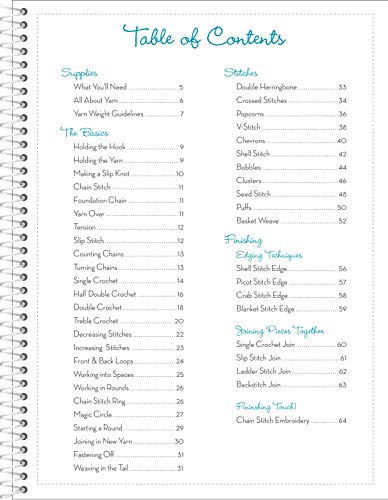 Table of Contents
Supplies
What You'll Need 5
All About Yarn 6
Yarn Weight Guidelines 7
The Basics
Holding the Hook 9
Holding the Yarn 9
Making a Slip Knot 10
Chain Stitch 11
Foundation Chain 11
Yarn Over 11
Tension 12
Slip Stitch 12
Counting Chains 13
Turning Chains 13
Single Crochet 14
Half Double Crochet 16
Double Crochet 18
Treble Crochet 20
Decreasing Stitches 22
Increasing Stitches 23
Front & Back Loops 24
Working into Spaces 25
Working in Rounds 26
Chain Stitch Ring 26
Magic Circle 27
Starting a Round 29
Joining in New Yarn 30
Fastening Off 31
Weaving in the Tail 31
Stitches
Double Herringbone 33
Crossed Stitches 34
Popcorns 36
V-Stitch 38
Chevrons 40
Shell Stitch 42
Bobbles 44
Clusters 46
Seed Stitch 48
Puffs 50
Basket Weave 52
Finishing
Edging Techniques
Shell Stitch Edge 56
Picot Stitch Edge 57
Crab Stitch Edge 58
Blanket Stitch Edge 59
Joining Pieces Together
Single Crochet Join 60
Slip Stitch Join 61
Ladder Stitch Join 62
Backstitch Join 63
Finishing Touch!
Chain Stitch Embroidery 64